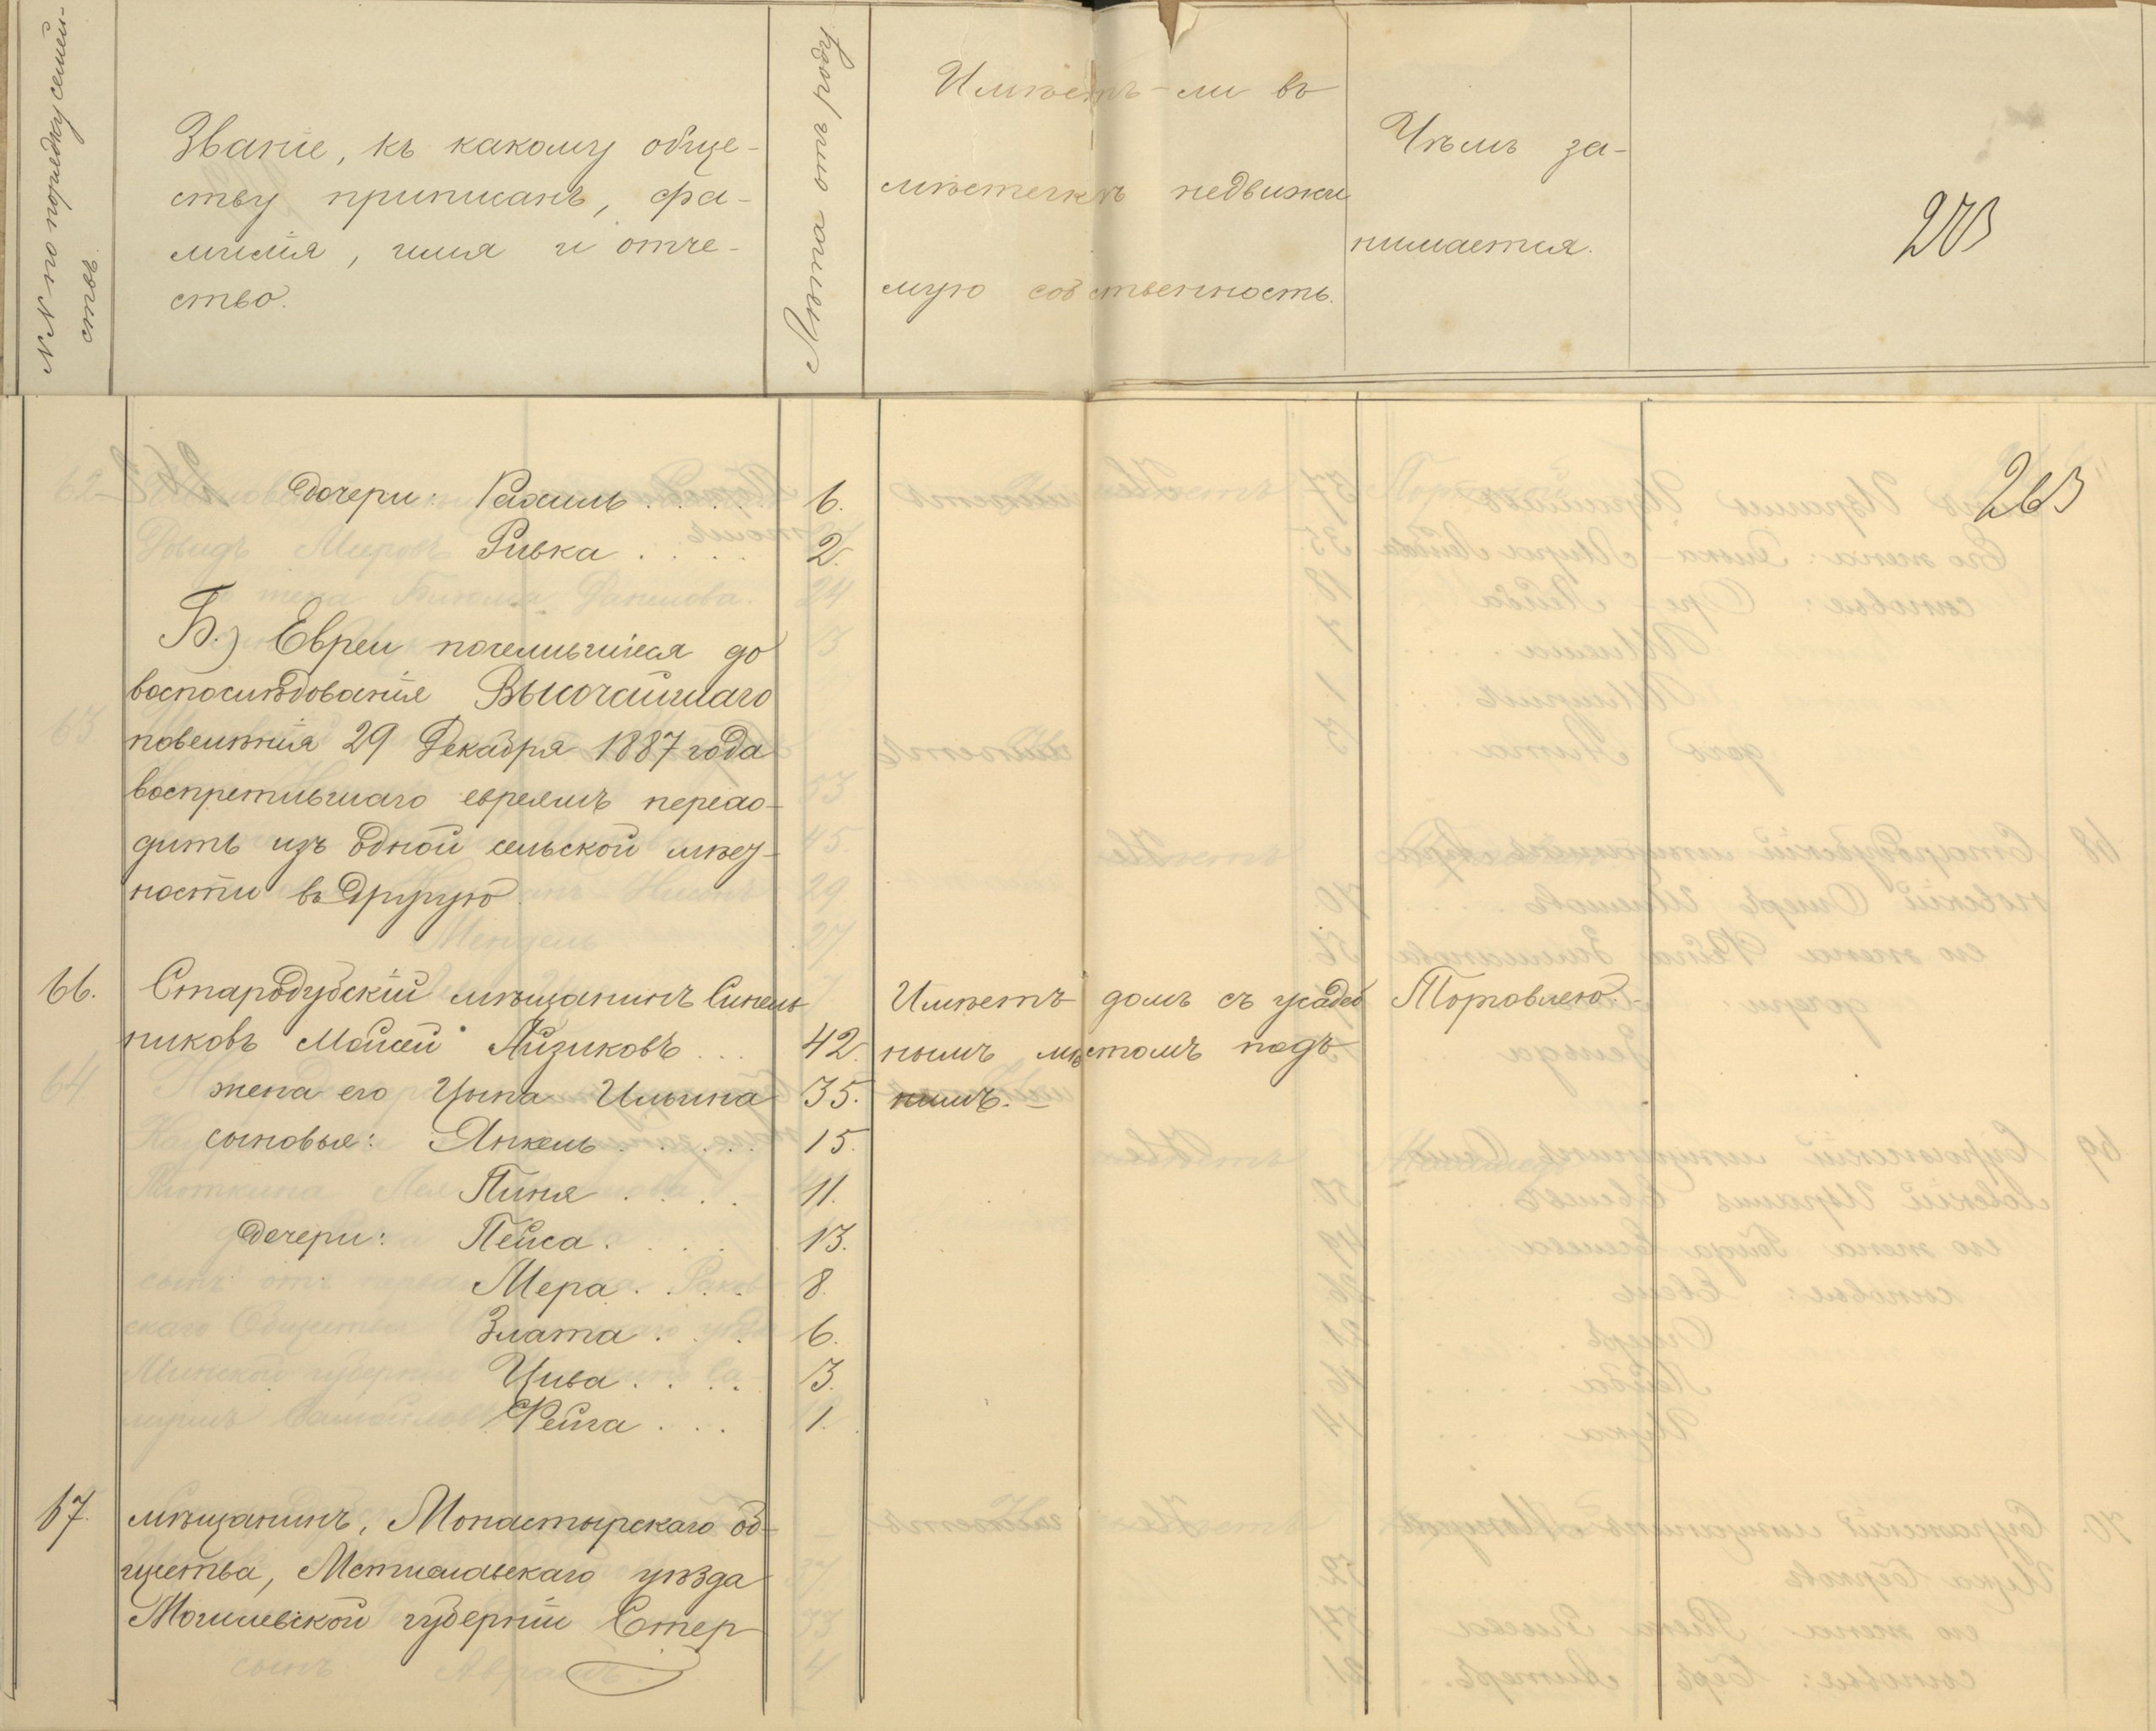 №№ по порядку семей-
ствъ.
Званіе, къ какому обще-
ству приписанъ, фа-
милія, имя и отче-
ство.
Лѣта отъ роду
Имѣетъ-ли въ
мѣстечкѣ недвижи
мую собственность.
Чѣмъ за-
нимается.
203
263
дочери: Рахиль . . . . . 6.
Ривка . . . . 2.
Б.) Евреи поселившіеся до
воспослѣдованія Высочайшаго
повелѣнія 29 Декабря 1887 года
воспретившаго евреямъ перехо-
дить изъ одной сельской мѣст-
ности въ другую
66. Стародубскій мѣщанинъ Синель Имѣетъ домъ съ усадеб Торговлею.
никовъ Мойсей Айзиковъ . . . 42. нымъ мѣстомъ подъ
жена его Цына Ильина 35. нимъ.–
сыновья: Янкель . . . . . 15.
Пиня . . . . 11.
дочери: Пейса . . . . 13.
Мера . . . . 8.
Злата . . . 6.
Цива . . . . 3.
Фейга . . . 1.
67. мѣщанинъ, Монастырскаго об-
щества, Мстиславскаго уѣзда
Могилевской губерніи Стер